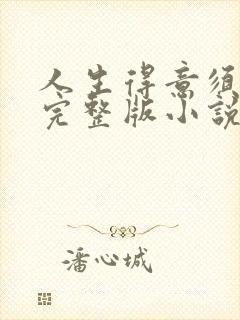 人生得意须
完整版小說
潘心城